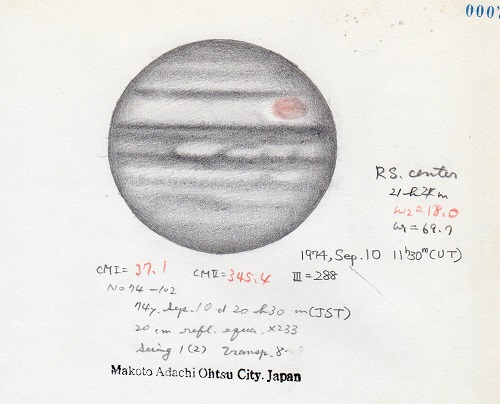 0007
R.S. center
21 h 24 m
ω₂=18.0
ω₁=69.7
1974, Sep. 10 11ʰ30ᵐ(UT)
CMI= 37.1 CMII=345.4 III=288
No 74-102
74y. Sep. 10 d 20 h 30 m (JST)
20 cm refl. equa. ×233
Seeing 1(2) Transp.
Makoto Adachi Ohtsu City. Japan